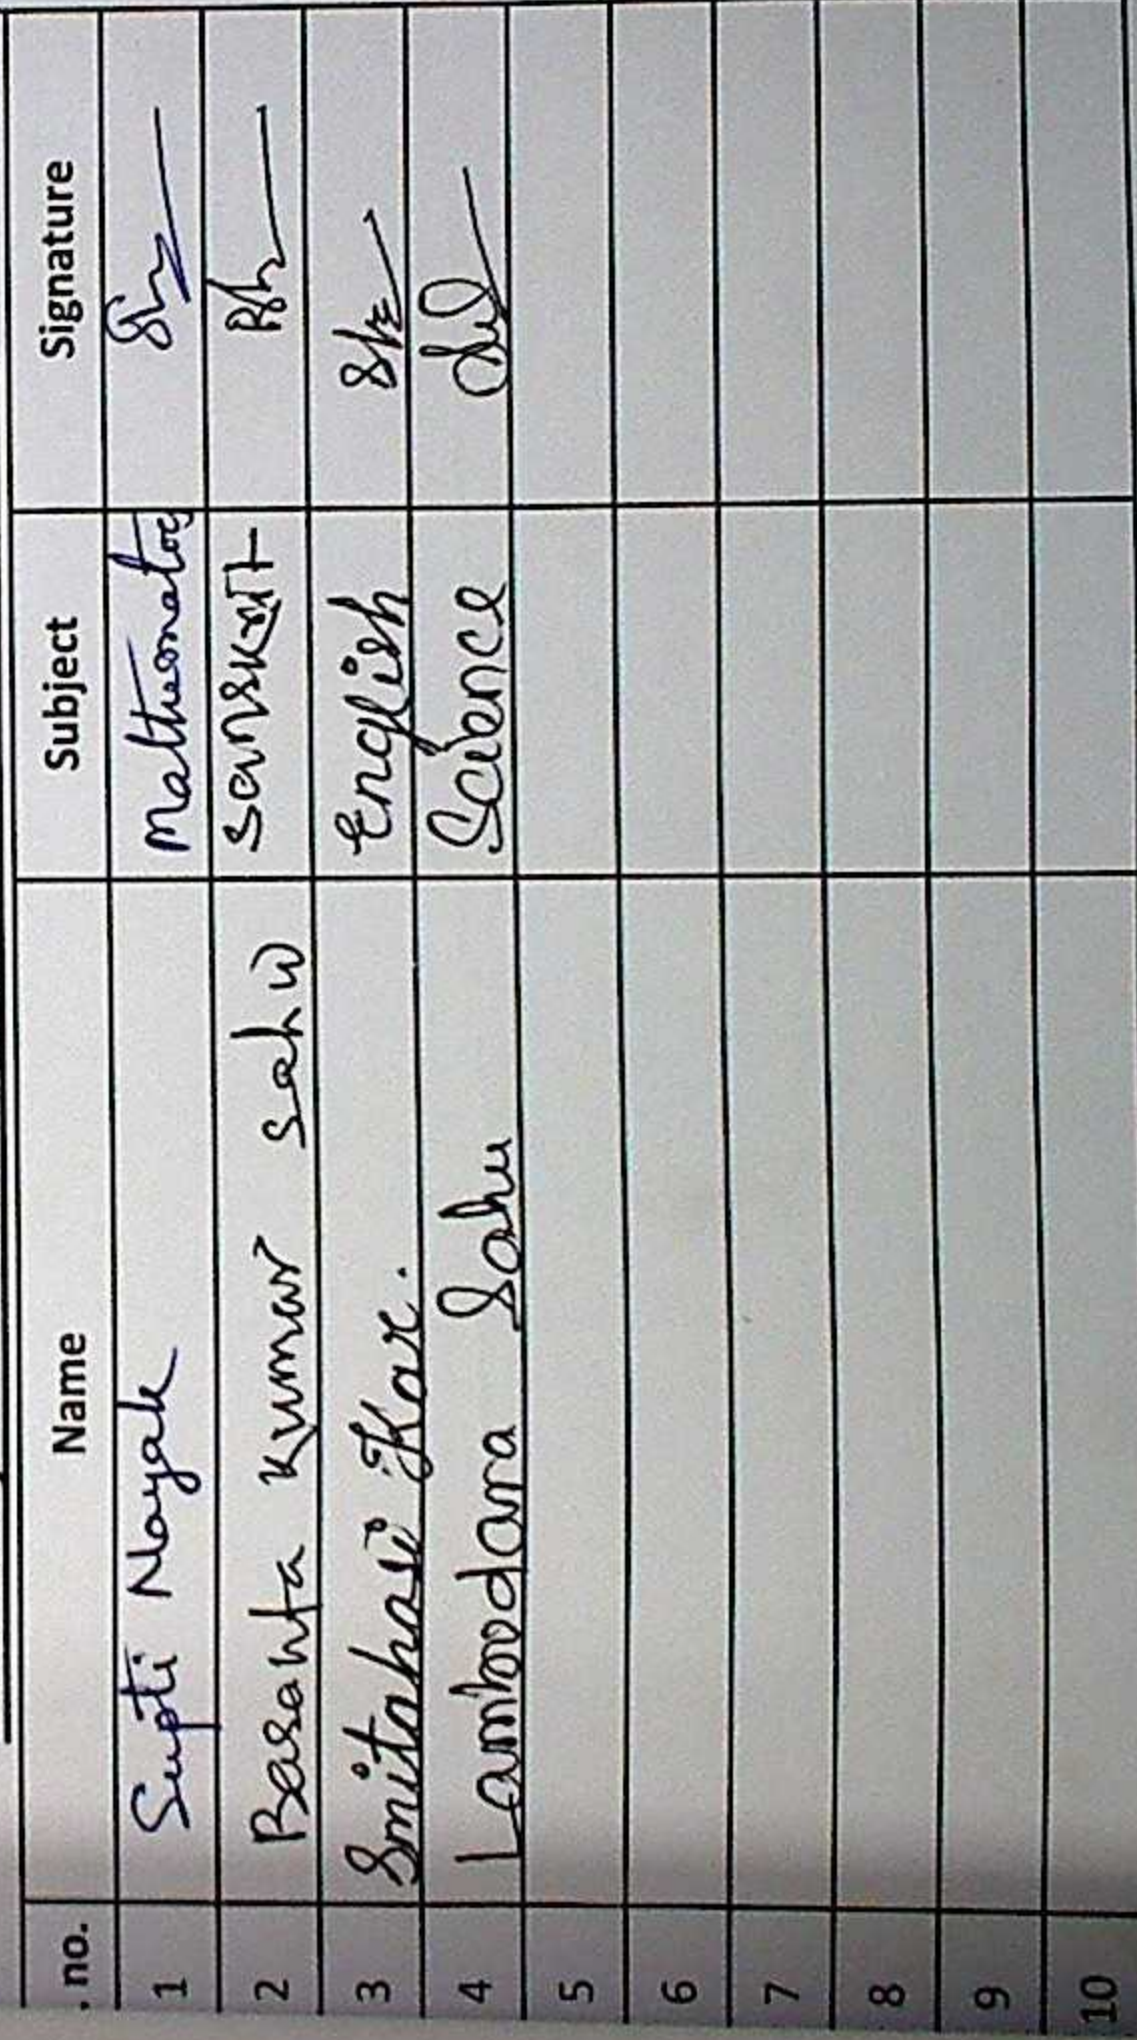 . no. Name Subject Signature
1 Supti Nayak Mathematics
2 Basanta Kumar Sahu Sanskrit
3 Smitahasi Kar. English
4 Lambodara Sahu Science
5
6
7
8
9
10